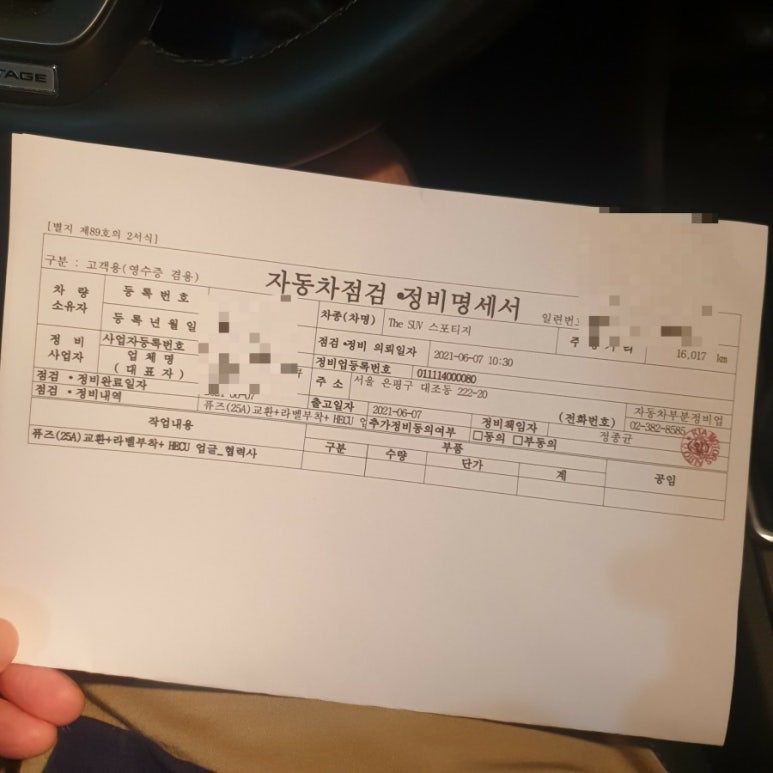 TAGE
[별지 제89호의 2서식]
구분 : 고객용(영수증 겸용)
자동차점검·정비명세서
일련번호
차량 소유자
등록번호
차종(차명)
The SUV 스포티지
16,017 km
등록년월일
점검·정비 의뢰일자
2021-06-07 10:30
정비 사업자
사업자등록번호
정비업등록번호
011114000080
업체명
(대표자)
주 소
서울 은평구 대조동 222-20
(전화번호)
자동차부분정비업
02-382-8585
점검·정비완료일자
2021-06-07
출고일자
2021-06-07
정비책임자
정종균
점검·정비내역
퓨즈(25A)교환+라벨부착+ HECU 업
추가정비동의여부
□동의 □부동의
작업내용
구분
부품
수량
단가
계
공임
퓨즈(25A)교환+라벨부착+ HECU 업글_협력사